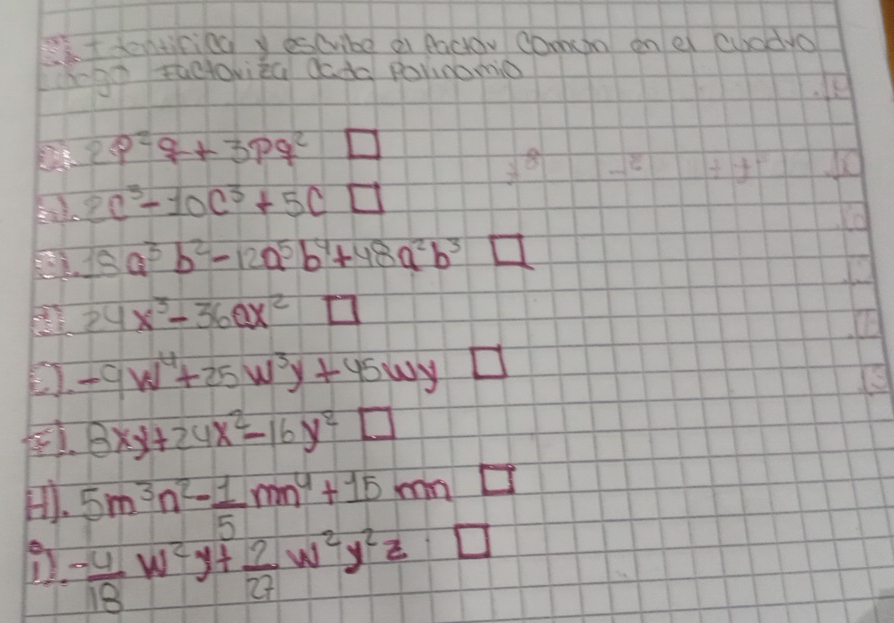 Identifica y escribe el factor común en el cuadro
luego factoriza cada polinomio
2p²q + 3pq² □
2c³ - 10c³ + 5c □
18a³b² - 12a⁵b⁴ + 48a²b³ □
24x³ - 36ax² □
-9w⁴ + 25w³y + 45wy □
8xy + 24x² - 16y² □
H). 5m³n² - 1/5 mn⁴ + 15 mn □
i). -4/18 w²y + 2/27 w²y²z □